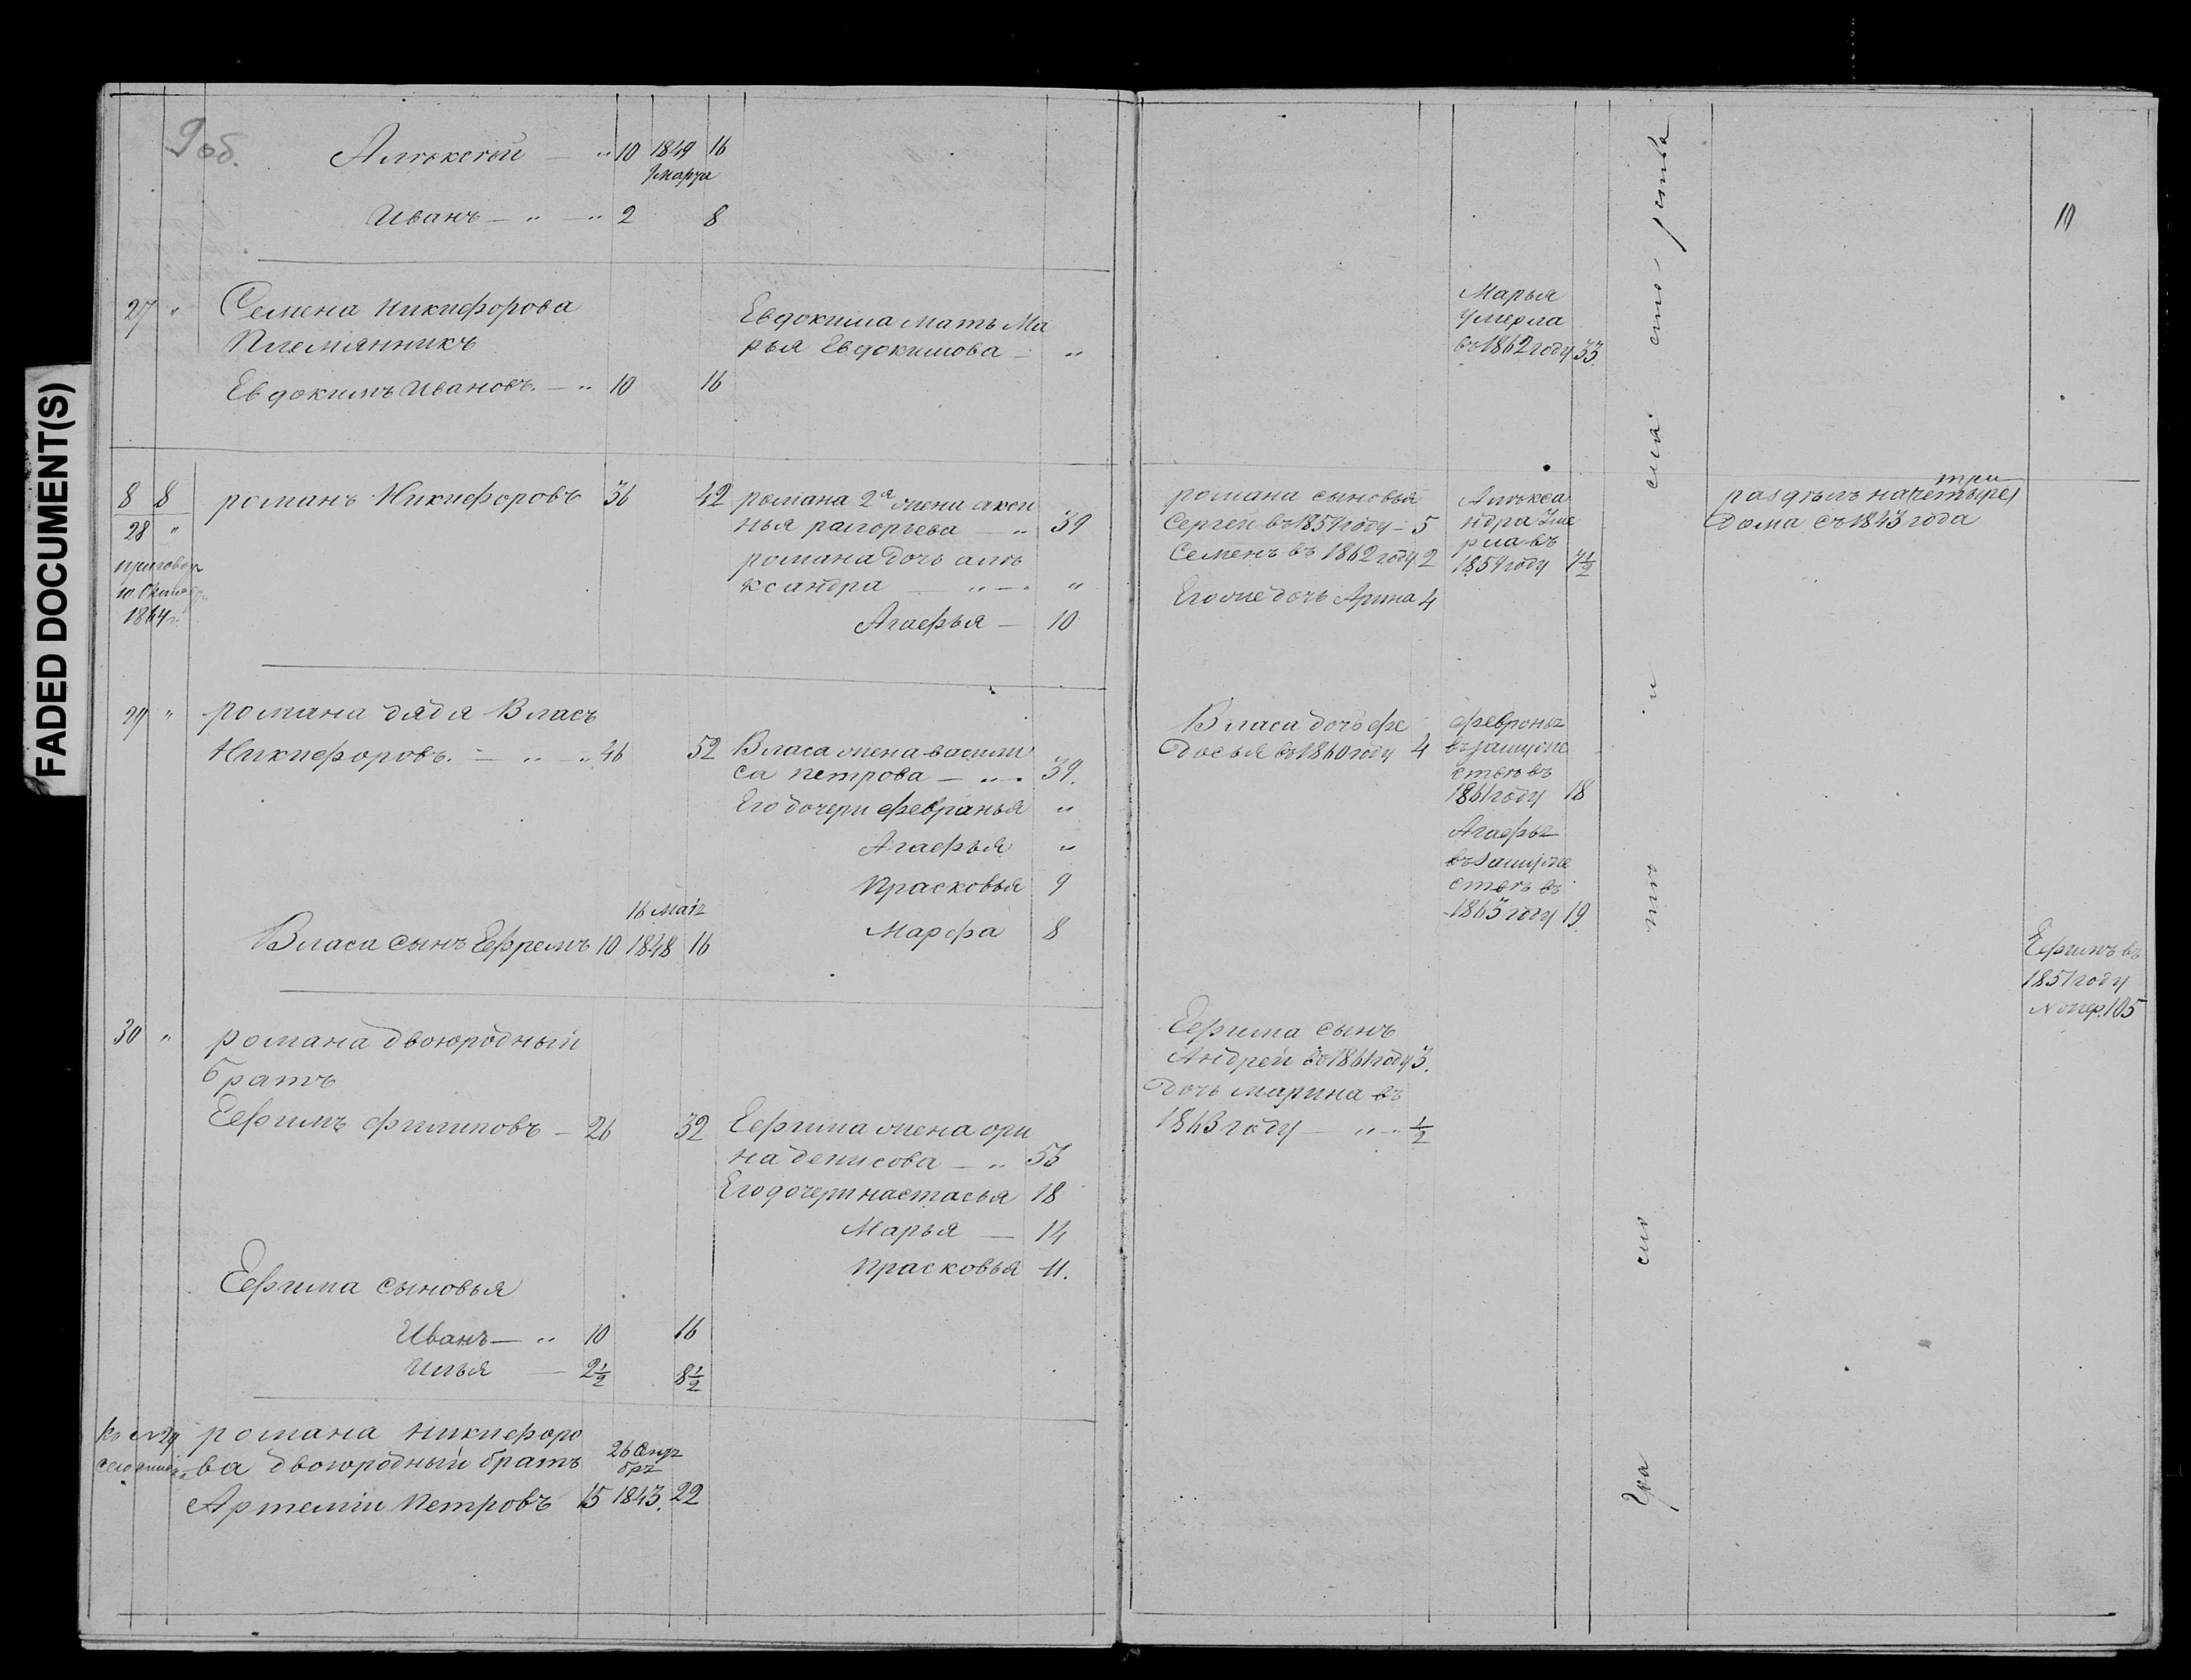 FADED DOCUMENT(S)
9 об.
Алѣксѣй — " 10 1849 16
9 марта
Иванъ — " — " 2 8
27 " Семена Никифорова
Племянникъ
Евдокимъ Ивановъ. — " 10 16
Евдокима мать Ма
рья Евдокимова — "
8 8 романъ Никифоровъ 36 42
28 "
приговор
1864 г.
романа 2я жена акси
нья григорьева — " 39
романа дочь алѣ
ксандра — " — "
Агафья — 10
29 " романа дядя Власъ
Никифоровъ. — " — " 46 52
Власа жена васили
са петрова — " — 39.
Его дочери февранья "
Агафья "
Прасковья 9
Марфа 8
16 Маія
Власа сынъ Ефремъ 10 1848 16
30 " романа двоюродный
братъ
Ефимъ филиповъ — 26 32
Ефима жена ори
на денисова — " 53
Его дочери настасья 18
Марья — 14
Прасковья 11.
Ефима сыновья
Иванъ — " 10 16
Илья — 2½ 8½
къ №29
романа Никифоро
ва двоюродный братъ
Артемiй Петровъ 15 1843. 22
26
бря
10
Марья
умерла
въ 1862 году 33
романа сыновья
Сергей въ 1859 году — 5
Семенъ въ 1862 году 2
Его же дочь Арина 4
Алѣкса
ндра уме
рла въ
1859 году 7½
три
раздѣлъ на четыре
дома съ 1843 года
Власа дочь фе
досья въ 1860 году 4
февронья
въ замуже
ствѣ въ
1861 году 18
Агафья
въ замуже
ствѣ въ
1863 году 19
Ефимъ въ
1851 году
№ пер. 105
Ефима сынъ
Андрей въ 1861 году 3.
Дочь марина въ
1863 году — " — ½